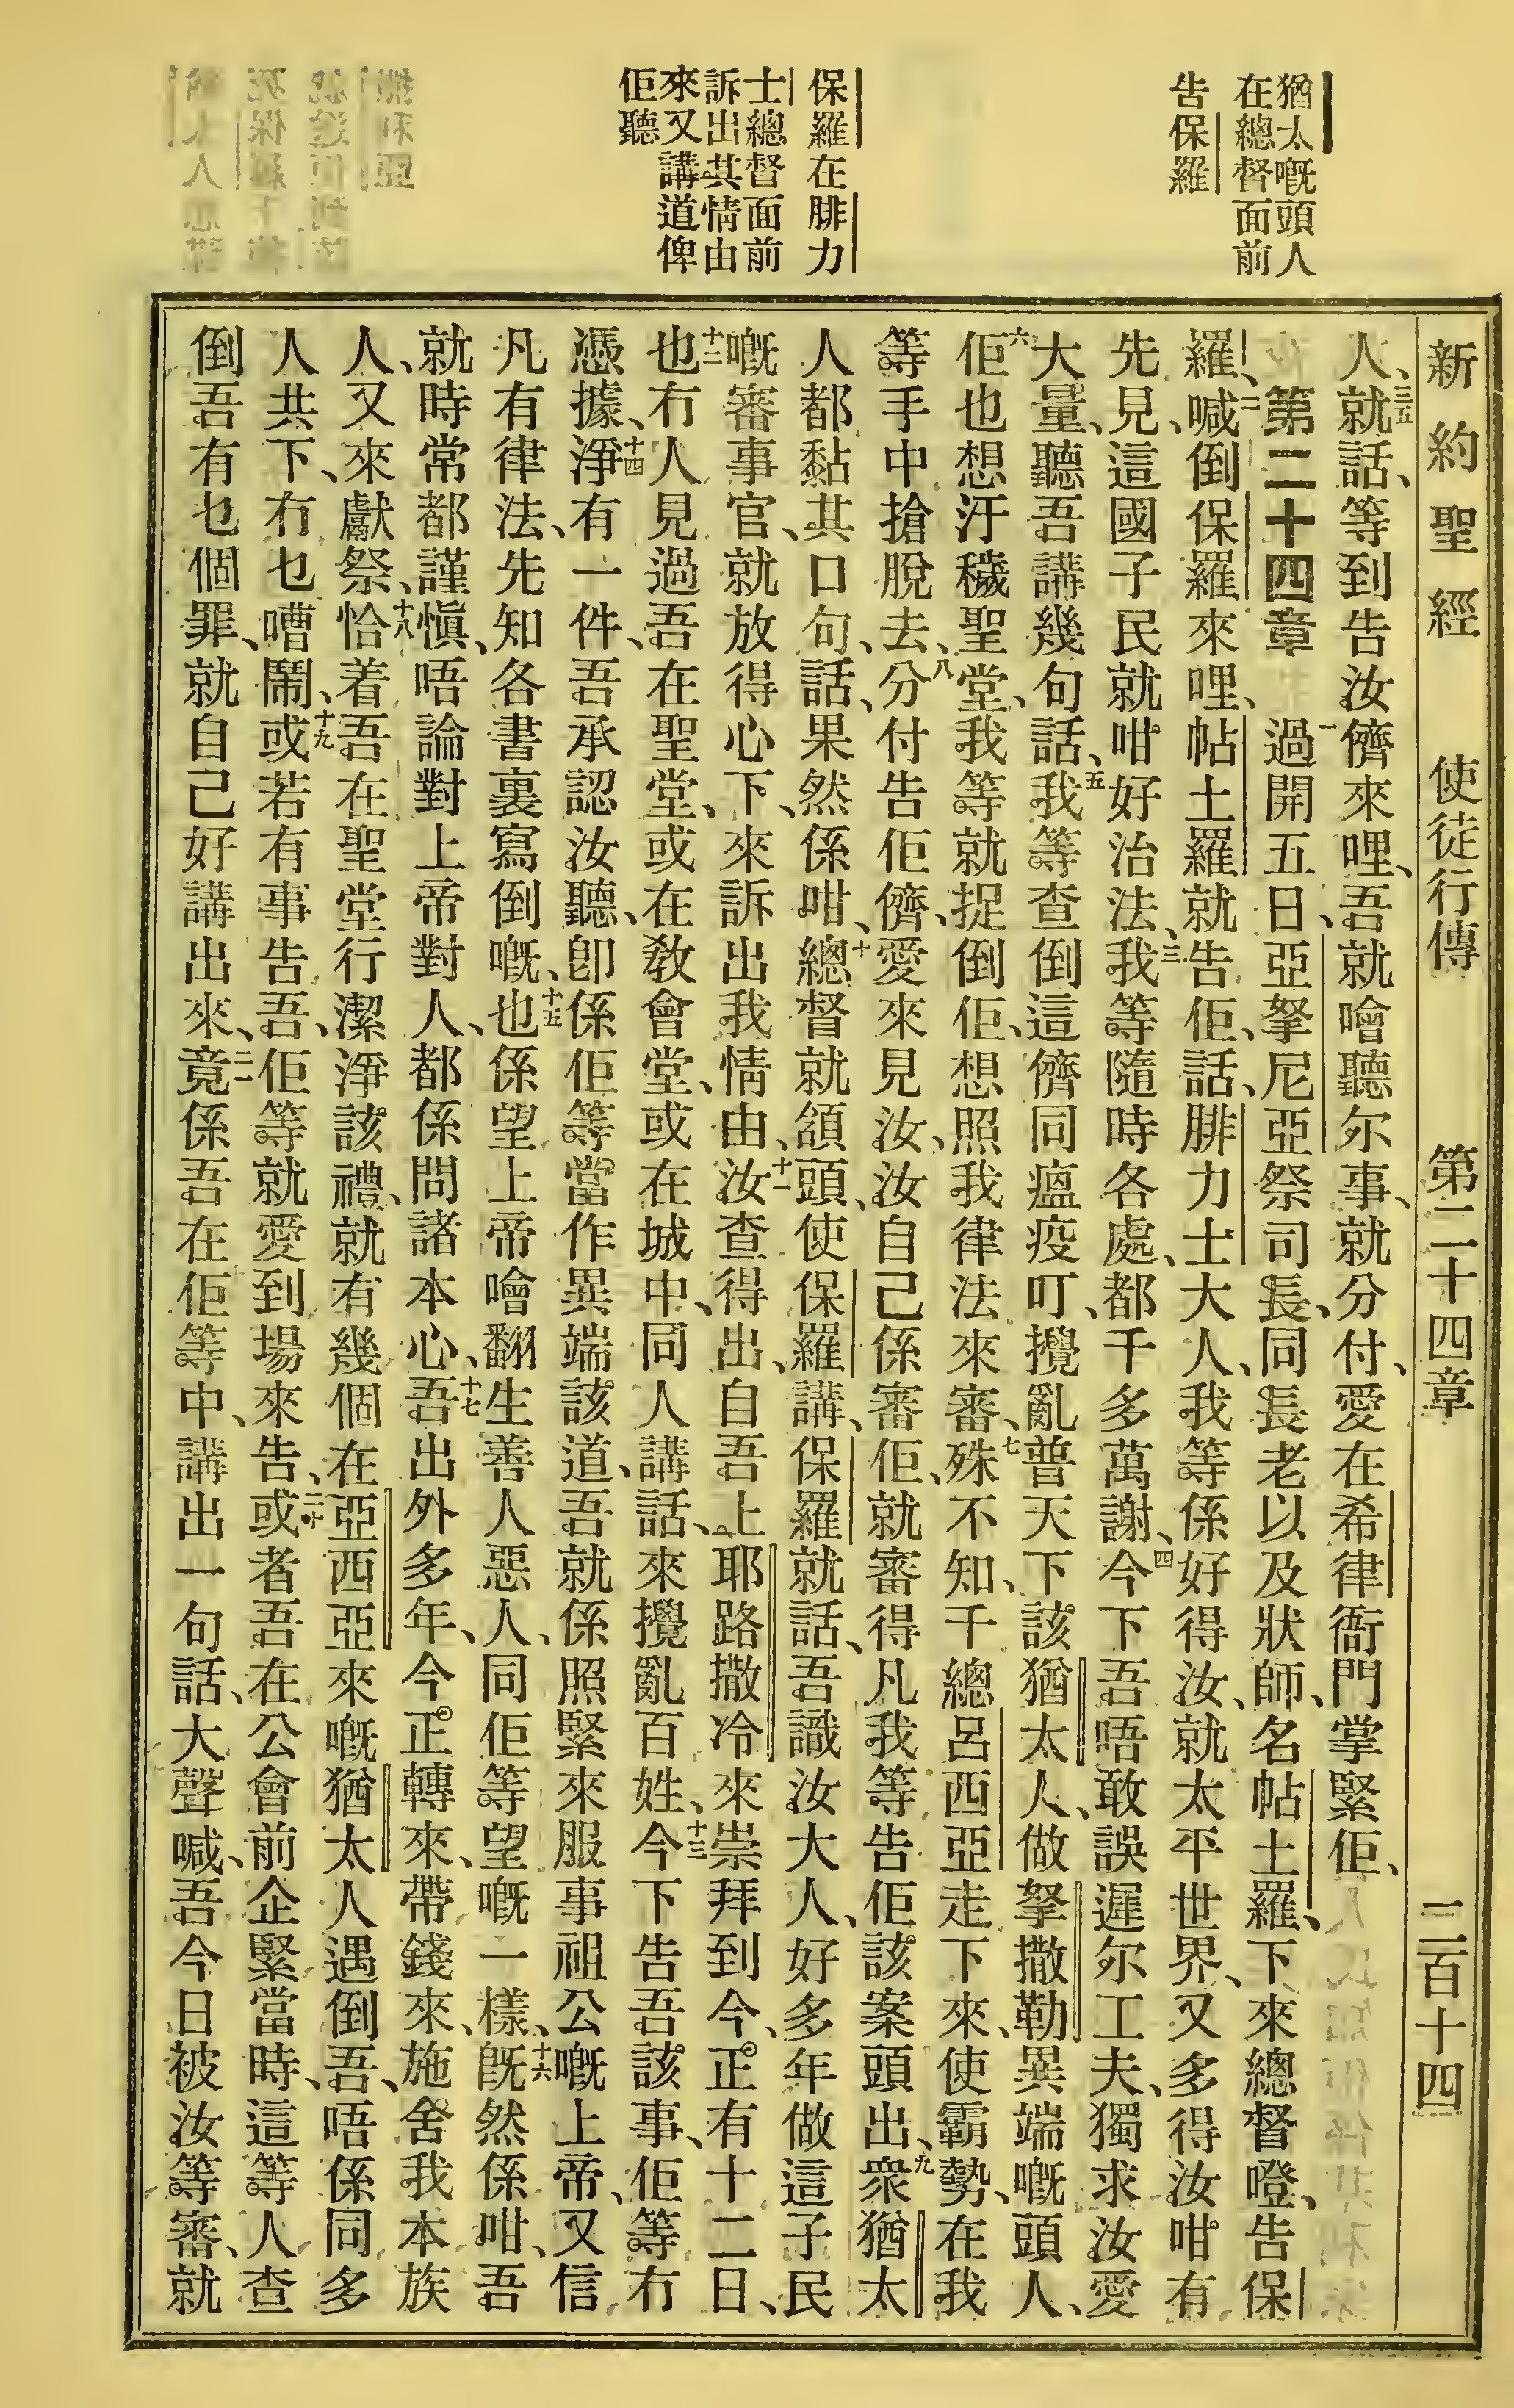 新約聖經 使徒行傳 第二十四章 三百十四
猶太嘅頭人
在總督面前
告保羅
保羅在腓力
士總督面前
訴出其情由
來又講道俾
佢聽
人、三五就話、等到告汝儕來哩、吾就噲聽尔事、就分付、愛在希律衙門掌緊佢、
第二十四章 一過開五日、亞拏尼亞祭司長、同長老以及狀師、名帖土羅、下來總督嶝、告保
羅、二喊倒保羅來哩、帖土羅就告佢、話、腓力士大人、我等係好得汝、就太平世界、又多得汝咁有
先見、這國子民就咁好治法、三我等隨時各處、都千多萬謝、四今下吾唔敢誤遲尔工夫、獨求汝愛
大量、聽吾講幾句話、五我等查倒這儕同瘟疫叮、攪亂普天下該猶太人、做拏撒勒異端嘅頭人、
六佢也想汙穢聖堂、我等就捉倒佢、想照我律法來審、七殊不知、千總呂西亞走下來、使霸勢、在我
等手中搶脫去、八分付告佢儕、愛來見汝、汝自己係審佢、就審得凡我等告佢該案頭出、九衆猶太
人都黏其口句、話、果然係咁、十總督就頷頭、使保羅講、保羅就話、吾識汝大人、好多年做這子民
嘅審事官、就放得心下、來訴出我情由、十一汝查得出、自吾上耶路撒冷來崇拜到今、正有十二日、
十二也冇人見過吾在聖堂、或在敎會堂、或在城中、同人講話、來攪亂百姓、十三今下告吾該事、佢等冇
憑據、十四淨有一件、吾承認汝聽、卽係佢等當作異端該道、吾就係照緊來服事祖公嘅上帝、又信
凡有律法、先知各書裏寫倒嘅、十五也係望上帝噲翻生善人惡人、同佢等望嘅一樣、十六旣然係咁、吾
就時常都謹愼、唔論對上帝對人、都係問諸本心、十七吾出外多年、今正轉來、帶錢來、施舍我本族
人、又來獻祭、十八恰着吾在聖堂行潔淨該禮、就有幾個在亞西亞來嘅猶太人遇倒吾、唔係同多
人共下、冇乜嘈鬧、十九或若有事告吾、佢等就愛到場來告、二十或者吾在公會前企緊當時、這等人查
倒吾有乜個罪、就自己好講出來、二一竟係吾在佢等中、講出一句話、大聲喊、吾今日被汝等審、就